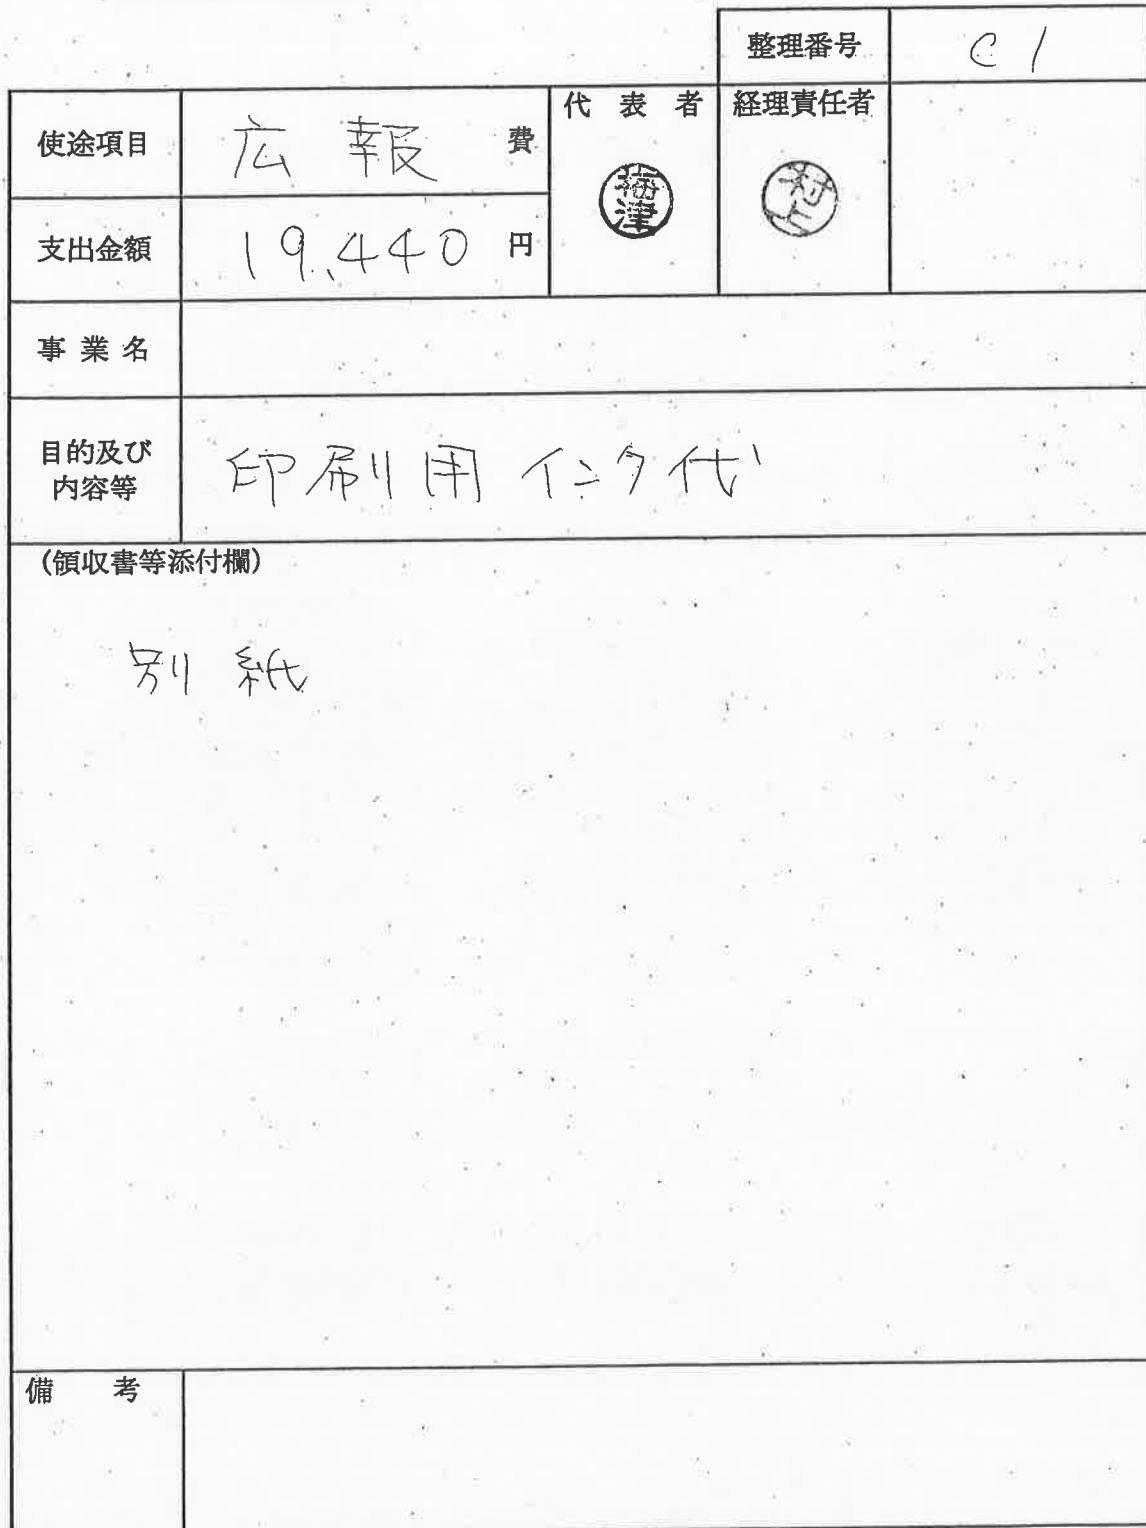 整理番号 C1
使途項目 広報 費
代表者 経理責任者
梅津 村上
支出金額 19,440 円
事業名
目的及び
内容等
印刷用インク代
(領収書等添付欄)
別紙
備考